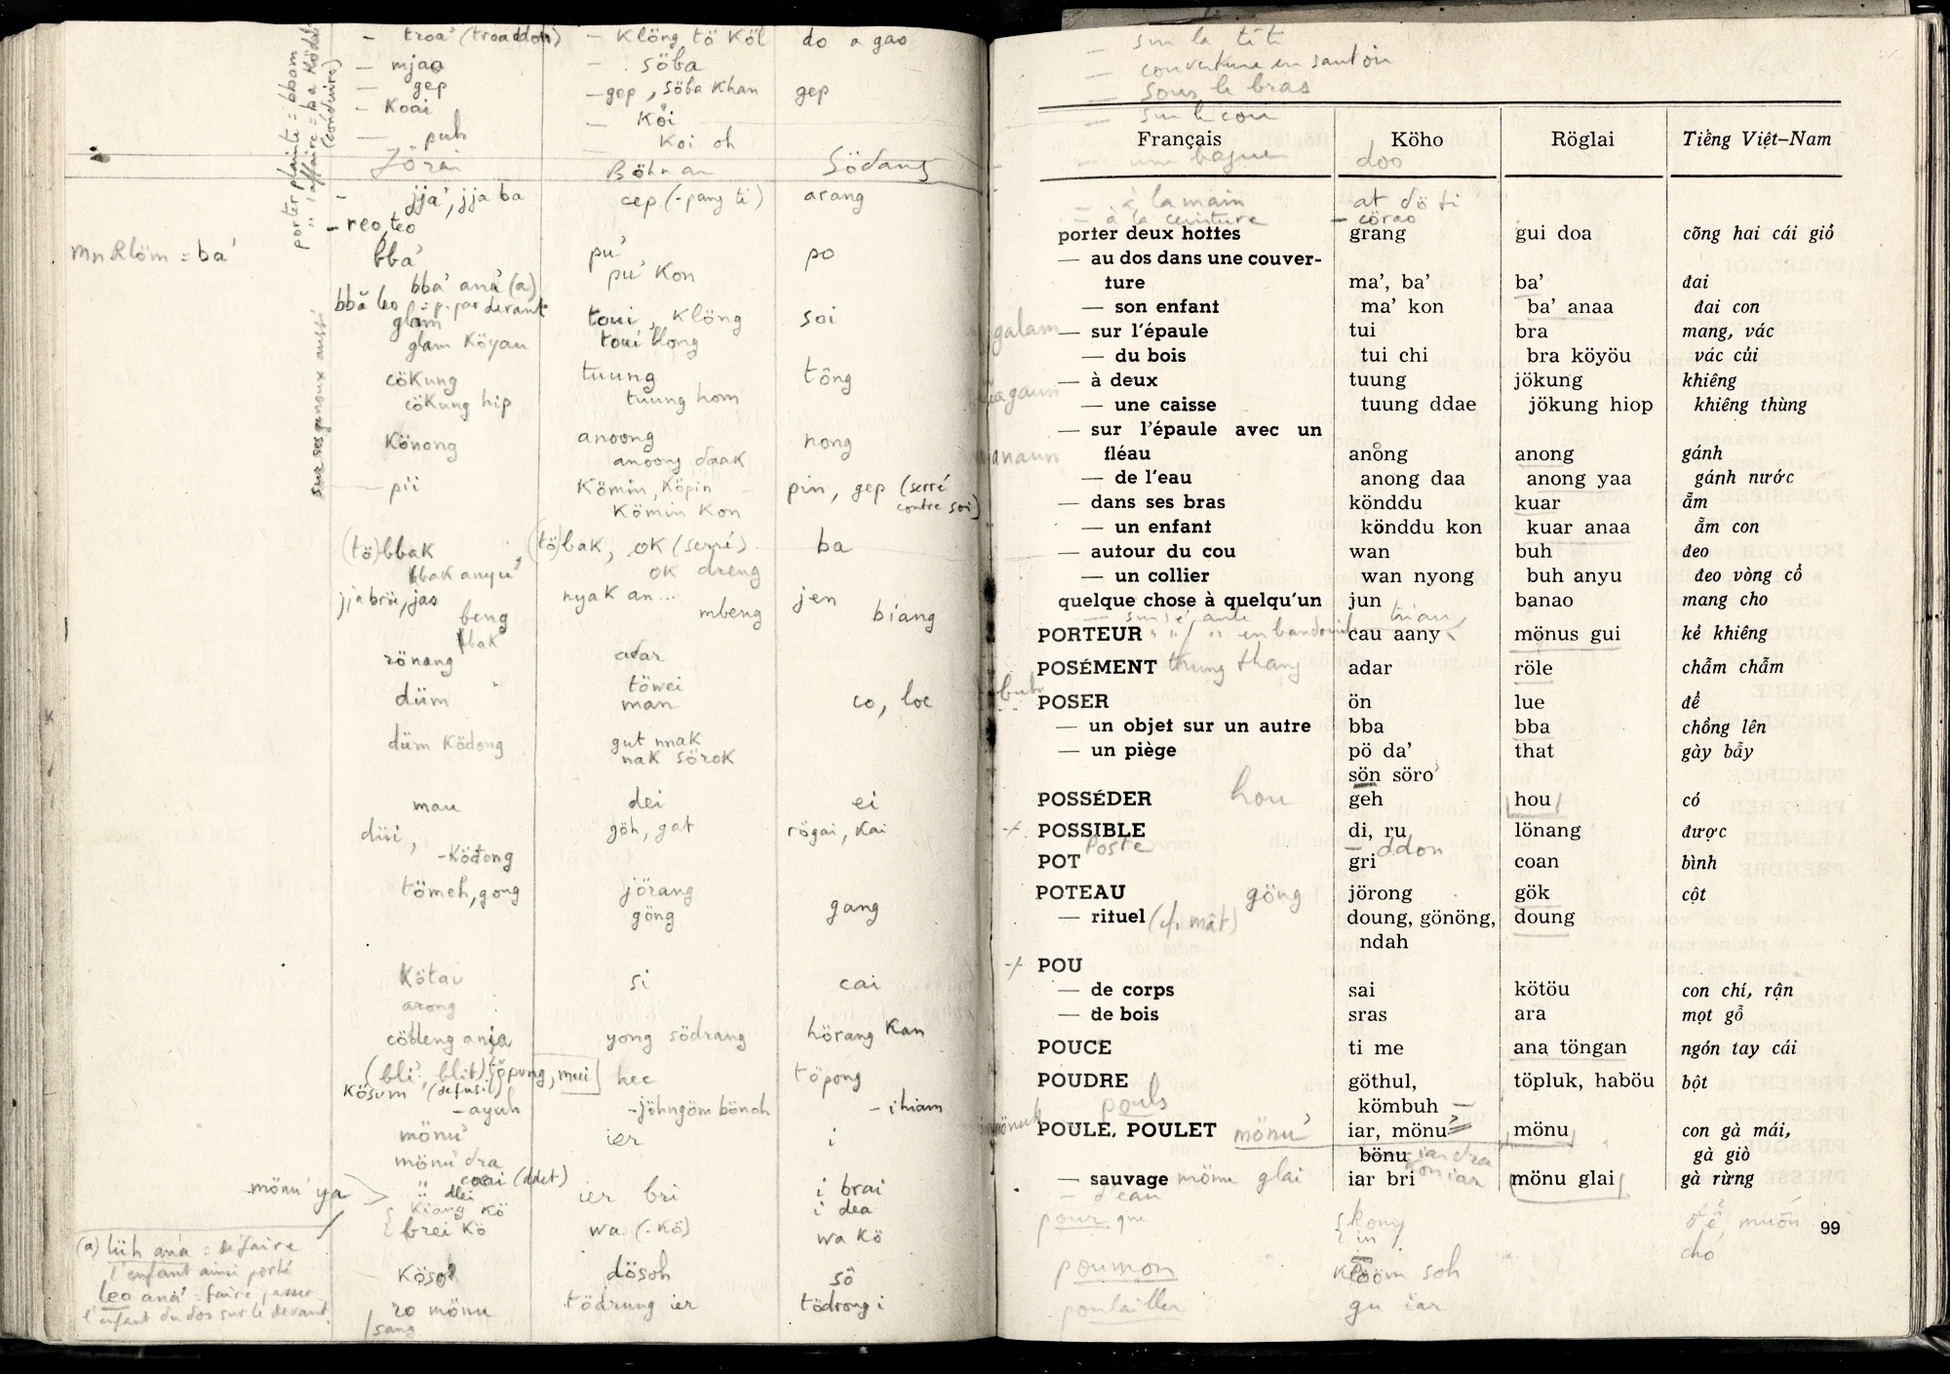 - troa' (troaddon) - Klöng tö Köl do a gao
- mjao - söba
- gep - gep, söba Khan gep
- Koai - Koi
- puh Koi oh
Jörai Böhnar Södang
- jja', jja ba cep (- pang ti) arang
- reo, teo
mn Rlöm = ba' bba' pu' po
bba' ana' (a) pu' Kon
bbă leo = p. par devant
glam toui, Klöng soi
glam Köyau toui blong
cöKung tuung tông
cöKung hip tuung hom
Könong anoong nong
anoong daaK
- pii Kömin, Köpin pin, gep (serré contre soi)
Kömin Kon
(tö)bbaK (tö)baK, oK (serré) ba
bbaK anyu' oK dreng
jja bröi, jao nyaK an... jen
beng mbeng biang
bbaK
rönang adar
düm töwei co, loc
man
düm Ködong gut nnaK
naK söroK
mau dei ei
düi, göh, gat rögai, Kai
- Ködong
tömeh, gong jörang gang
göng
Kötau si cai
arong
cöbleng anja yong södrang hörang Kan
(bli', blit) [töpung, mui] hec töpong
Kösum (de fusil)
- ayuh - jöhngöm bönoh - ihiam
mönu' ier i
mönu' dra
mönu' ya " dlei ier bri i brai
Kiang Kö i dea
brei Kö wa (- Kö) wa Kö
(a) lüh ana' = défaire
l'enfant ainsi porté
Kösoh dösoh sô
leo ana' = faire passer
l'enfant du dos sur le devant.
ro mönu tödrung ier tödrong i
/ sang
porter plainte = bbom
" l'affaire = ba Ködi
(conduire)
sur ses genoux aussi
- sur la tête
- couverture en sautoir
- sous le bras
- sur le cou
Français Köho Röglai Tiếng Việt-Nam
- une bague doo
- à la main at dö ti
- à la ceinture - cörao
porter deux hottes grang gui doa cõng hai cái giỏ
— au dos dans une couver-
ture ma’, ba’ ba’ đai
— son enfant ma’ kon ba’ anaa đai con
galam — sur l’épaule tui bra mang, vác
— du bois tui chi bra köyöu vác củi
— à deux tuung jökung khiêng
— une caisse tuung ddae jökung hiop khiêng thùng
— sur l’épaule avec un
fléau anong anong gánh
— de l’eau anong daa anong yaa gánh nước
— dans ses bras könddu kuar ẵm
— un enfant könddu kon kuar anaa ẵm con
— autour du cou wan buh đeo
— un collier wan nyong buh anyu đeo vòng cổ
quelque chose à quelqu’un jun banao mang cho
PORTEUR cau aany mönus gui kẻ khiêng
POSÉMENT thung thang adar röle chẫm chẫm
buh POSER ön lue để
— un objet sur un autre bba bba chồng lên
— un piège pö da’ that gày bẫy
sön söro’
POSSÉDER hou geh hou có
+ POSSIBLE di, ru lönang được
Poste - ddon
POT gri coan bình
POTEAU göng jörong gök cột
— rituel (cf. mât) doung, gönöng, doung
ndah
+ POU
— de corps sai kötöu con chí, rận
— de bois sras ara mọt gỗ
POUCE ti me ana töngan ngón tay cái
POUDRE göthul, töpluk, haböu bột
pouls kömbuh —
POULE, POULET mönu' iar, mönu mönu con gà mái,
bönu iar dra gà giò
Kon iar
— sauvage mönu glai iar bri mönu glai gà rừng
- d'eau
pour que { kony để, muốn
in cho
99
poumon Klööm soh
poulailler gu iar